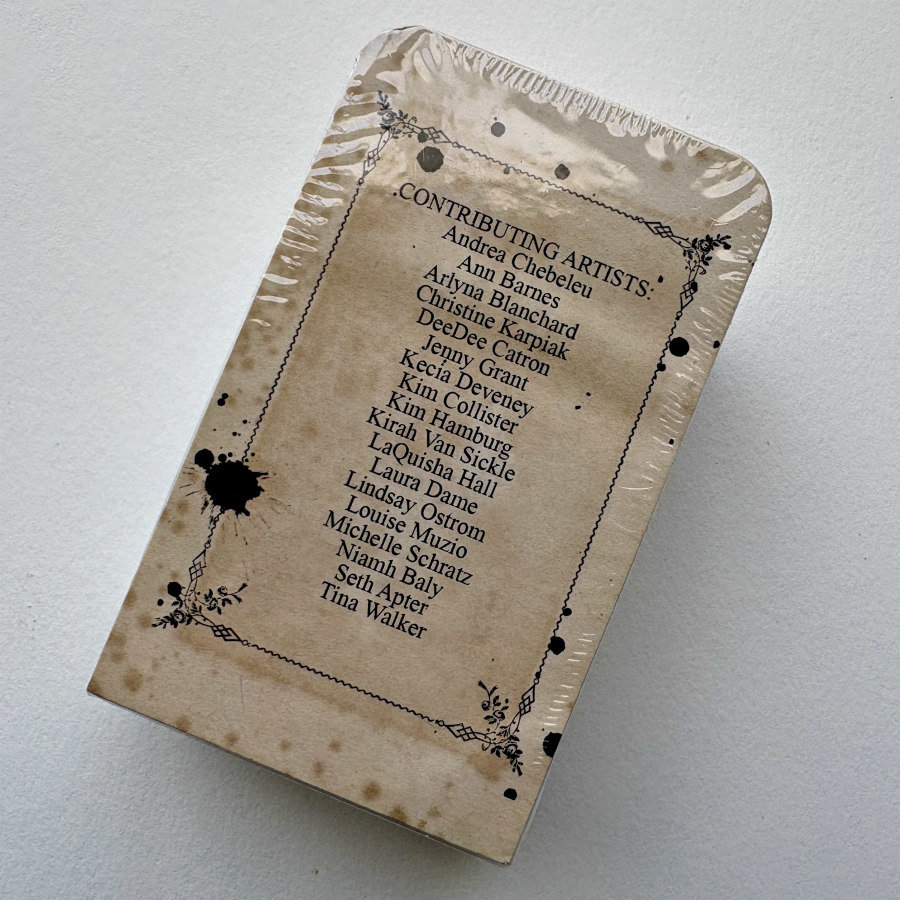 CONTRIBUTING ARTISTS:
Andrea Chebeleu
Ann Barnes
Arlyna Blanchard
Christine Karpiak
DeeDee Catron
Jenny Grant
Kecia Deveney
Kim Collister
Kim Hamburg
Kirah Van Sickle
LaQuisha Hall
Laura Dame
Lindsay Ostrom
Louise Muzio
Michelle Schratz
Niamh Baly
Seth Apter
Tina Walker